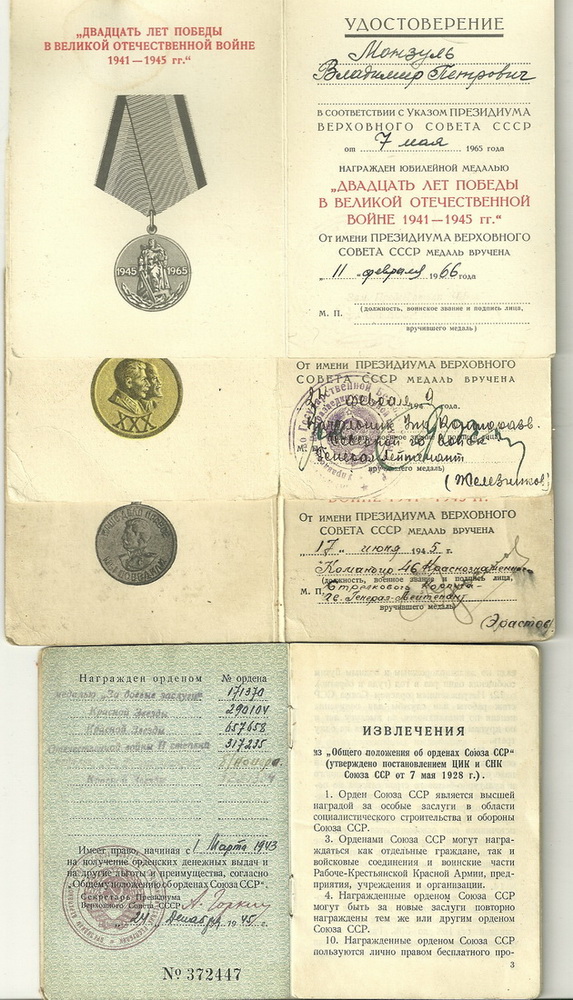 „ДВАДЦАТЬ ЛЕТ ПОБЕДЫ
В ВЕЛИКОЙ ОТЕЧЕСТВЕННОЙ ВОЙНЕ
1941—1945 гг.“
1945 1965
УДОСТОВЕРЕНИЕ
Монзуль
Владимир Петрович
В СООТВЕТСТВИИ С УКАЗОМ ПРЕЗИДИУМА
ВЕРХОВНОГО СОВЕТА СССР
от 7 мая 1965 года
НАГРАЖДЕН ЮБИЛЕЙНОЙ МЕДАЛЬЮ
„ДВАДЦАТЬ ЛЕТ ПОБЕДЫ
В ВЕЛИКОЙ ОТЕЧЕСТВЕННОЙ
ВОЙНЕ 1941—1945 гг.“
ОТ ИМЕНИ ПРЕЗИДИУМА ВЕРХОВНОГО
СОВЕТА СССР МЕДАЛЬ ВРУЧЕНА
„11 февраля 1966 года
М. П. (должность, воинское звание и подпись лица,
вручившего медаль)
XXX
ОТ ИМЕНИ ПРЕЗИДИУМА ВЕРХОВНОГО
СОВЕТА СССР МЕДАЛЬ ВРУЧЕНА
февраля 194 года.
Начальник
Генерал Лейтенант
вручившего медаль)
(Железников)
ОТ ИМЕНИ ПРЕЗИДИУМА ВЕРХОВНОГО
СОВЕТА СССР МЕДАЛЬ ВРУЧЕНА
„17„ июня 1945 г.
Командир 46 Краснознаменного
(должность, военное звание и подпись лица,
М. П. Стрелкового Корпуса
Генерал-Лейтенант
вручившего медаль)
(Эрастов)
Награжден орденом № ордена
медалью „За боевые заслуги“ 171370
Красной Звезды 290104
Красной Звезды 657658
Отечественной войны II степени 317235
Красной Звезды
Имеет право, начиная с 1 Марта 1943
на получение орденских денежных выдач и
на другие льготы и преимущества, согласно
„Общему положению об орденах Союза ССР“.
Секретарь Президиума
Верховного Совета СССР А. Горкин
„24„ Декабря 1945 г.
№ 372447
ИЗВЛЕЧЕНИЯ
из „Общего положения об орденах Союза ССР“
(утверждено постановлением ЦИК и СНК
Союза ССР от 7 мая 1928 г.).
1. Орден Союза ССР является высшей
наградой за особые заслуги в области
социалистического строительства и обороны
Союза ССР.
3. Орденами Союза ССР могут награ-
ждаться как отдельные граждане, так и
войсковые соединения и воинские части
Рабоче-Крестьянской Красной Армии, пред-
приятия, учреждения и организации.
4. Награжденные орденом Союза ССР
могут быть за новые заслуги повторно
награждены тем же или другим орденом
Союза ССР.
10. Награжденные орденом Союза ССР
пользуются лично правом бесплатного про-
3